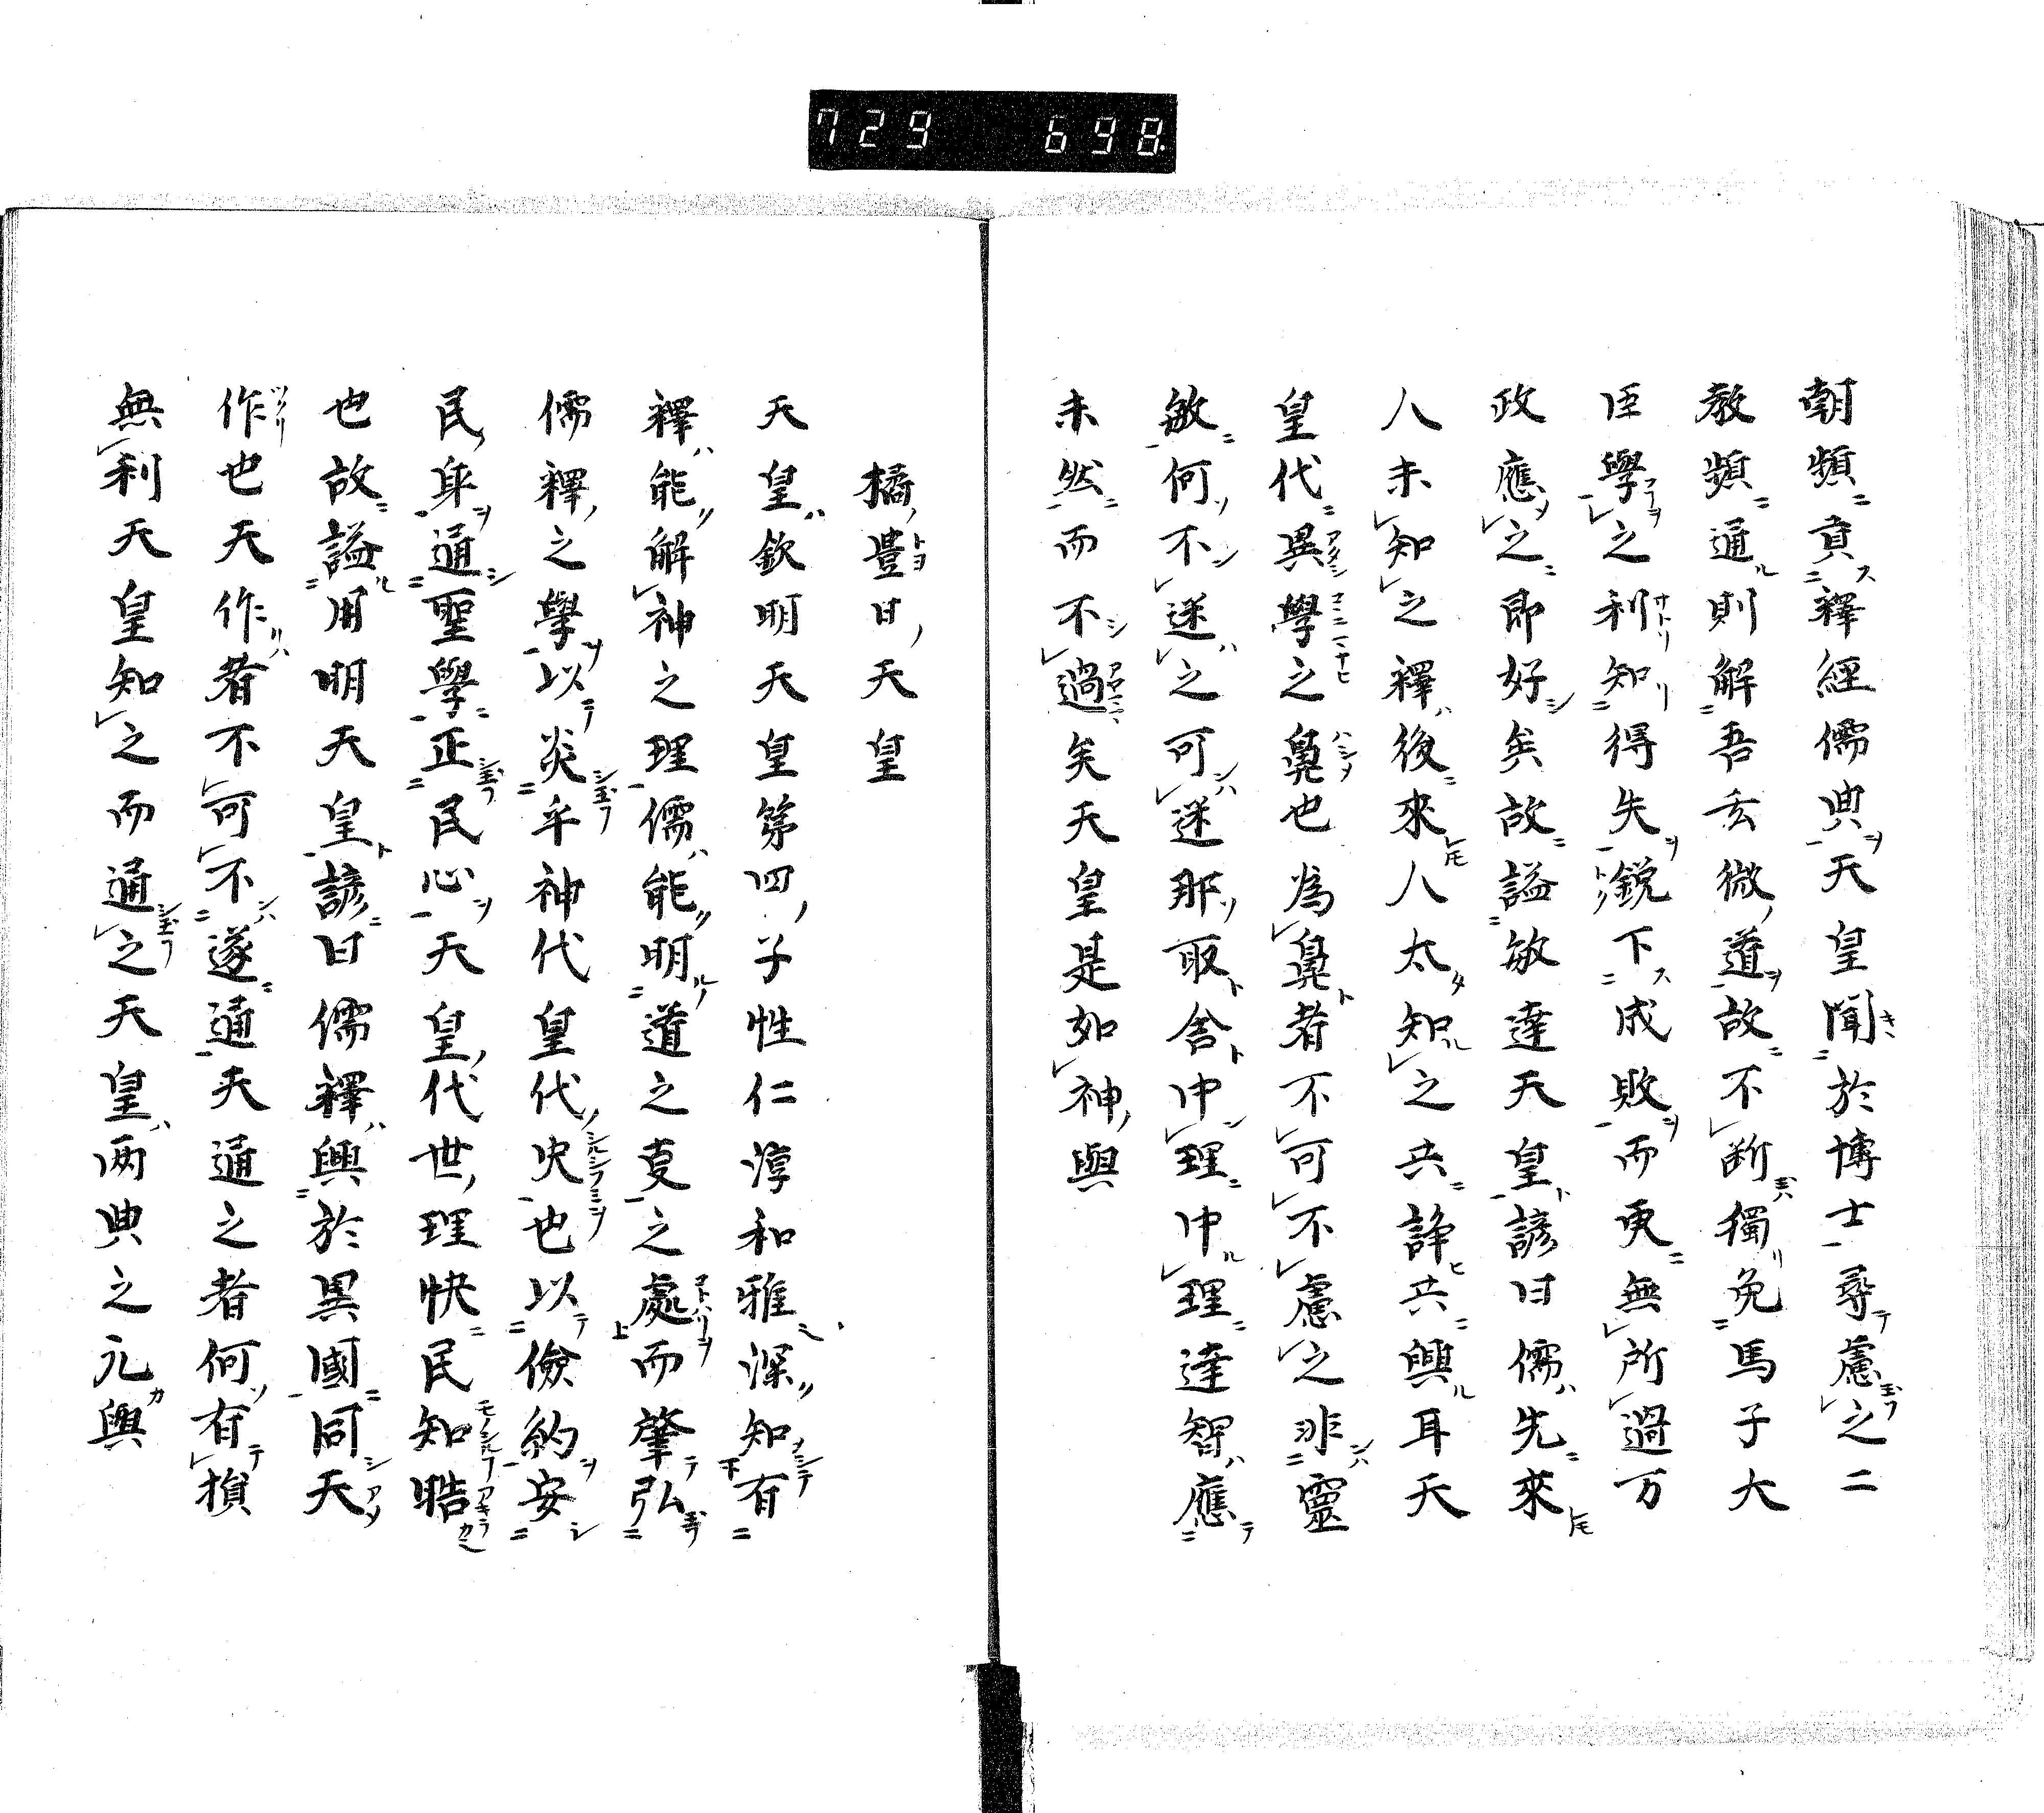 729 698
朝頻貢釋經儒典天皇聞於博士尋慮之二
教頻通則解吾玄微道故不断獨免馬子大
臣學之利知得失鋭下成敗而更無所過万
政應之即好矣故謚敏達天皇諺曰儒先來
人未知之釋後來人太知之共諍共興耳天
皇代異學之鼻也為鼻者不可不慮之非靈
敏何不迷之可迷那取舎中理中理達智應
未然而不過矣天皇是如神與
橘豊日天皇
天皇欽明天皇第四子性仁淳和雅深知有
釋能解神之理儒能明道之㕝之處而肇弘
儒釋之學以炎乎神代皇代史也以儉約安
民身通聖學正民心天皇代世理快民知晧
也故謚用明天皇諺曰儒釋興於異國同天
作也天作者不可不遂通天通之者何有損
無利天皇知之而通之天皇兩典之元與